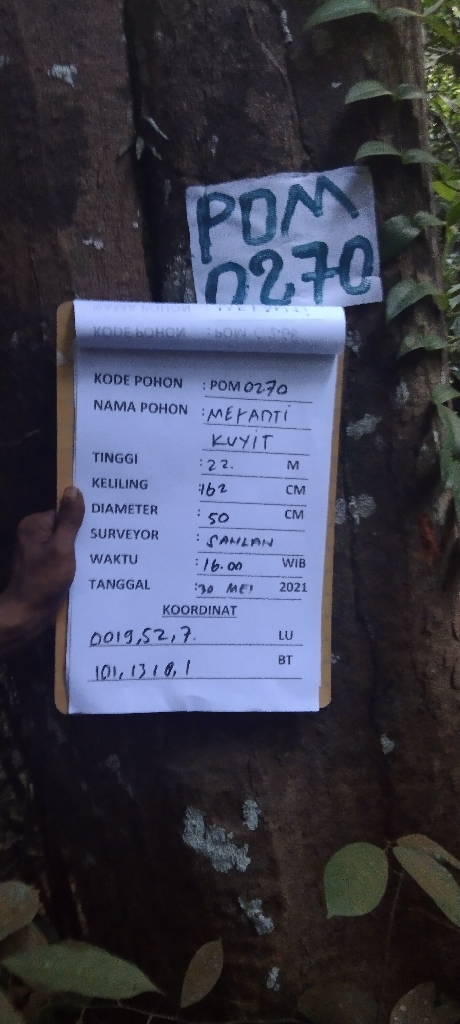 POM
0270
KODE POHON : POM 0270
NAMA POHON : MERANTI
KUYIT
TINGGI : 22. M
KELILING : 162 CM
DIAMETER : 50 CM
SURVEYOR : SAHLAN
WAKTU : 16.00 WIB
TANGGAL : 30 MEI 2021
KOORDINAT
0019,52,7. LU
101,1318,1 BT